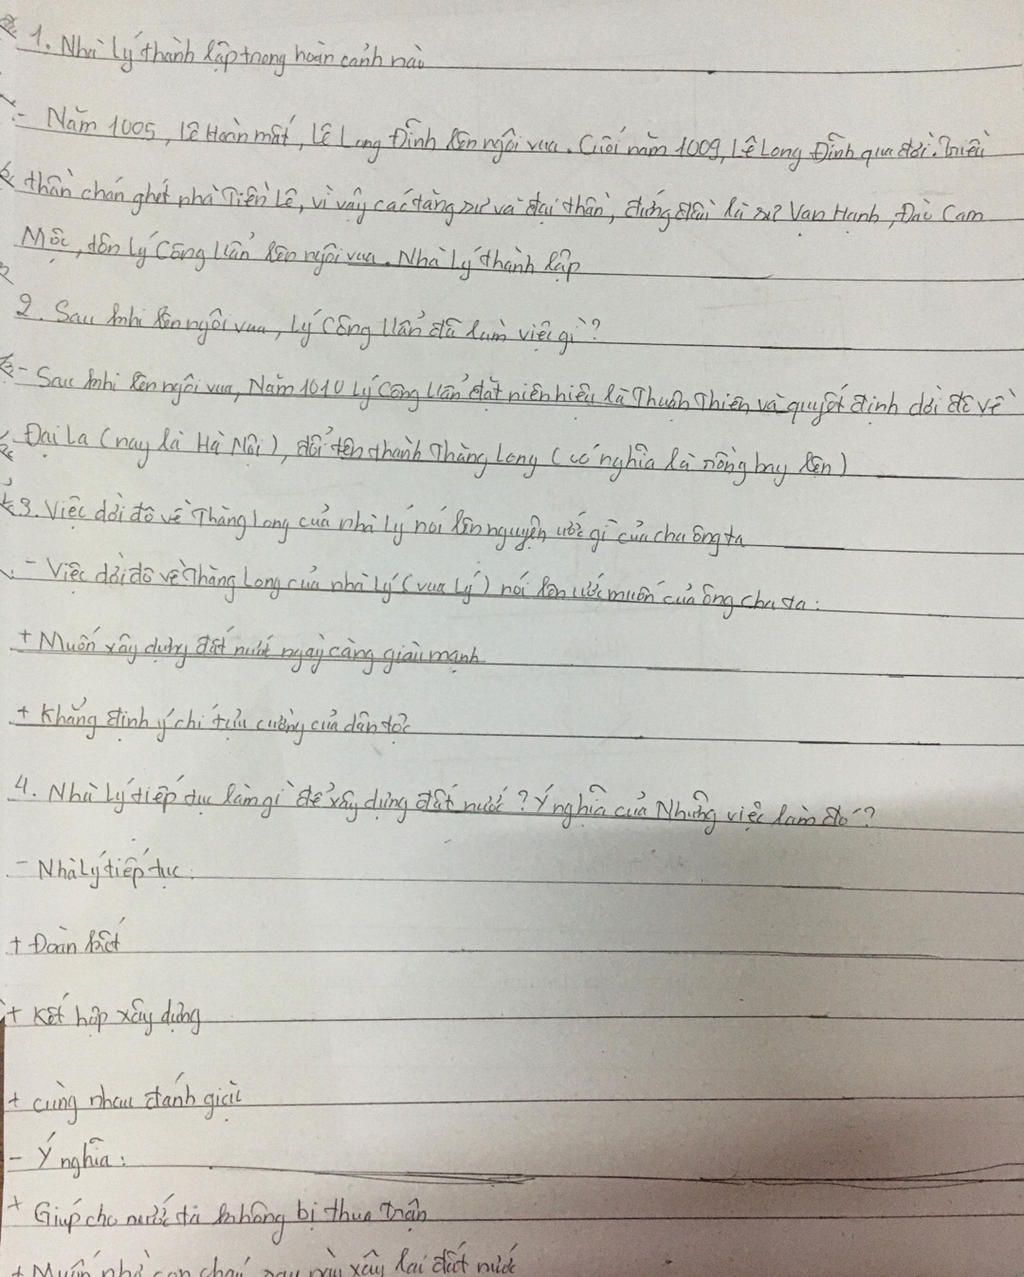 1. Nhà Lý thành lập trong hoàn cảnh nào
- Năm 1005, Lê Hoàn mất, Lê Long Đĩnh lên ngôi vua. Cuối năm 1009, Lê Long Đĩnh qua đời. Triều
thần chán ghét nhà Tiền Lê, vì vậy các tăng sư và đại thần, đứng đầu là sư Vạn Hạnh, Đào Cam
Mộc, tôn Lý Công Uẩn lên ngôi vua. Nhà Lý thành lập
2. Sau khi lên ngôi vua, Lý Công Uẩn đã làm việc gì?
- Sau khi lên ngôi vua, Năm 1010 Lý Công Uẩn đặt niên hiệu là Thuận Thiên và quyết định dời đô về
Đại La (nay là Hà Nội), đổi tên thành Thăng Long (có nghĩa là rồng bay lên)
3. Việc dời đô về Thăng Long của nhà Lý nói lên nguyện ước gì của cha ông ta
- Việc dời đô về Thăng Long của nhà Lý (vua Lý) nói lên ước muốn của ông cha ta:
+ Muốn xây dựng đất nước ngày càng giàu mạnh
+ Khẳng định ý chí tự cường của dân tộc
4. Nhà Lý tiếp tục làm gì để xây dựng đất nước? Ý nghĩa của Những việc làm đó?
- Nhà Lý tiếp tục:
+ Đoàn kết
+ Kết hợp xây dựng
+ cùng nhau đánh giặc
- Ý nghĩa:
+ Giúp cho nước ta không bị thua trận
+ Muốn nhờ con cháu sau này xây lại đất nước